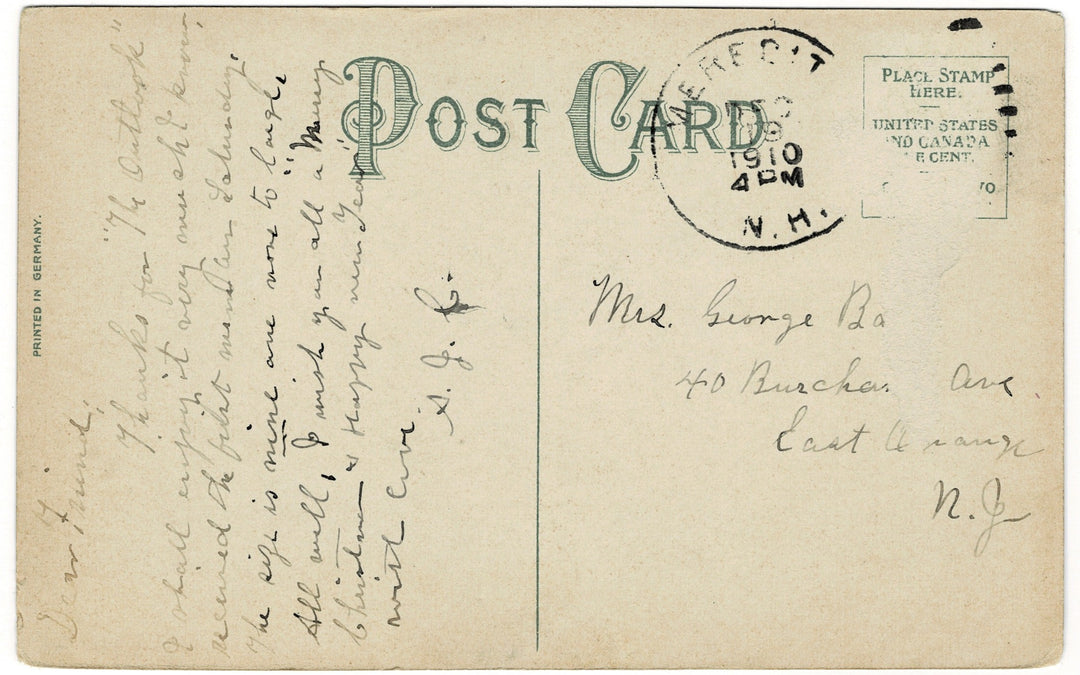 POST CARD
PRINTED IN GERMANY.
MEREDIT
DEC
19
1910
4 PM
N. H.
PLACE STAMP
HERE.
UNITED STATES
AND CANADA
E CENT.
Dear Friend,
Thanks for "The Outlook"
I shall enjoy it very much I know,
received the first number Saturday.
The size is nine are not to large
All well, I wish you all a "Merry
Christmas & Happy New Year"
with love
S. J. C.
Mrs. George Ba
40 Burcha Ave
East Orange
N. J.